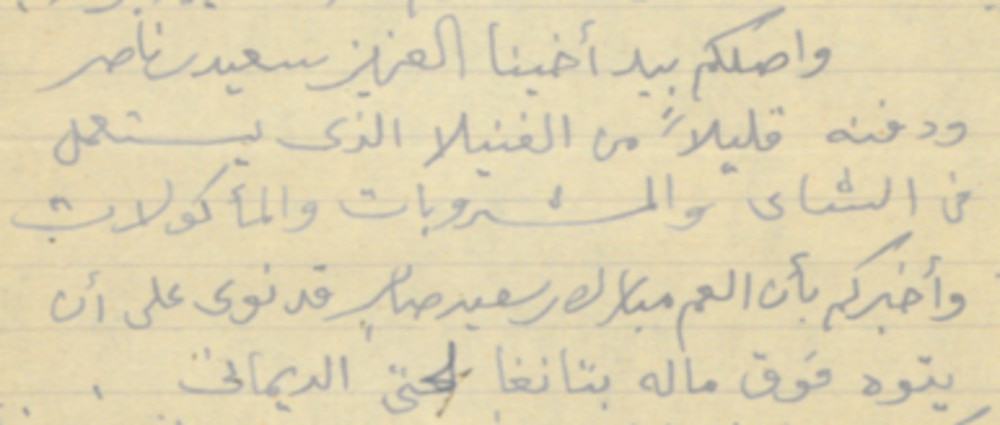 واصلكم بيد أخينا العزيز سعيد ناصر
ودفنه قليلاً من الفنيلا الذى يستعمل
فى الشاى والمشروبات والمأكولات
وأخبركم بأن العم مبارك سعيد صابر قد نوى على أن
يتوه فوق ماله بتانغا الديمانى